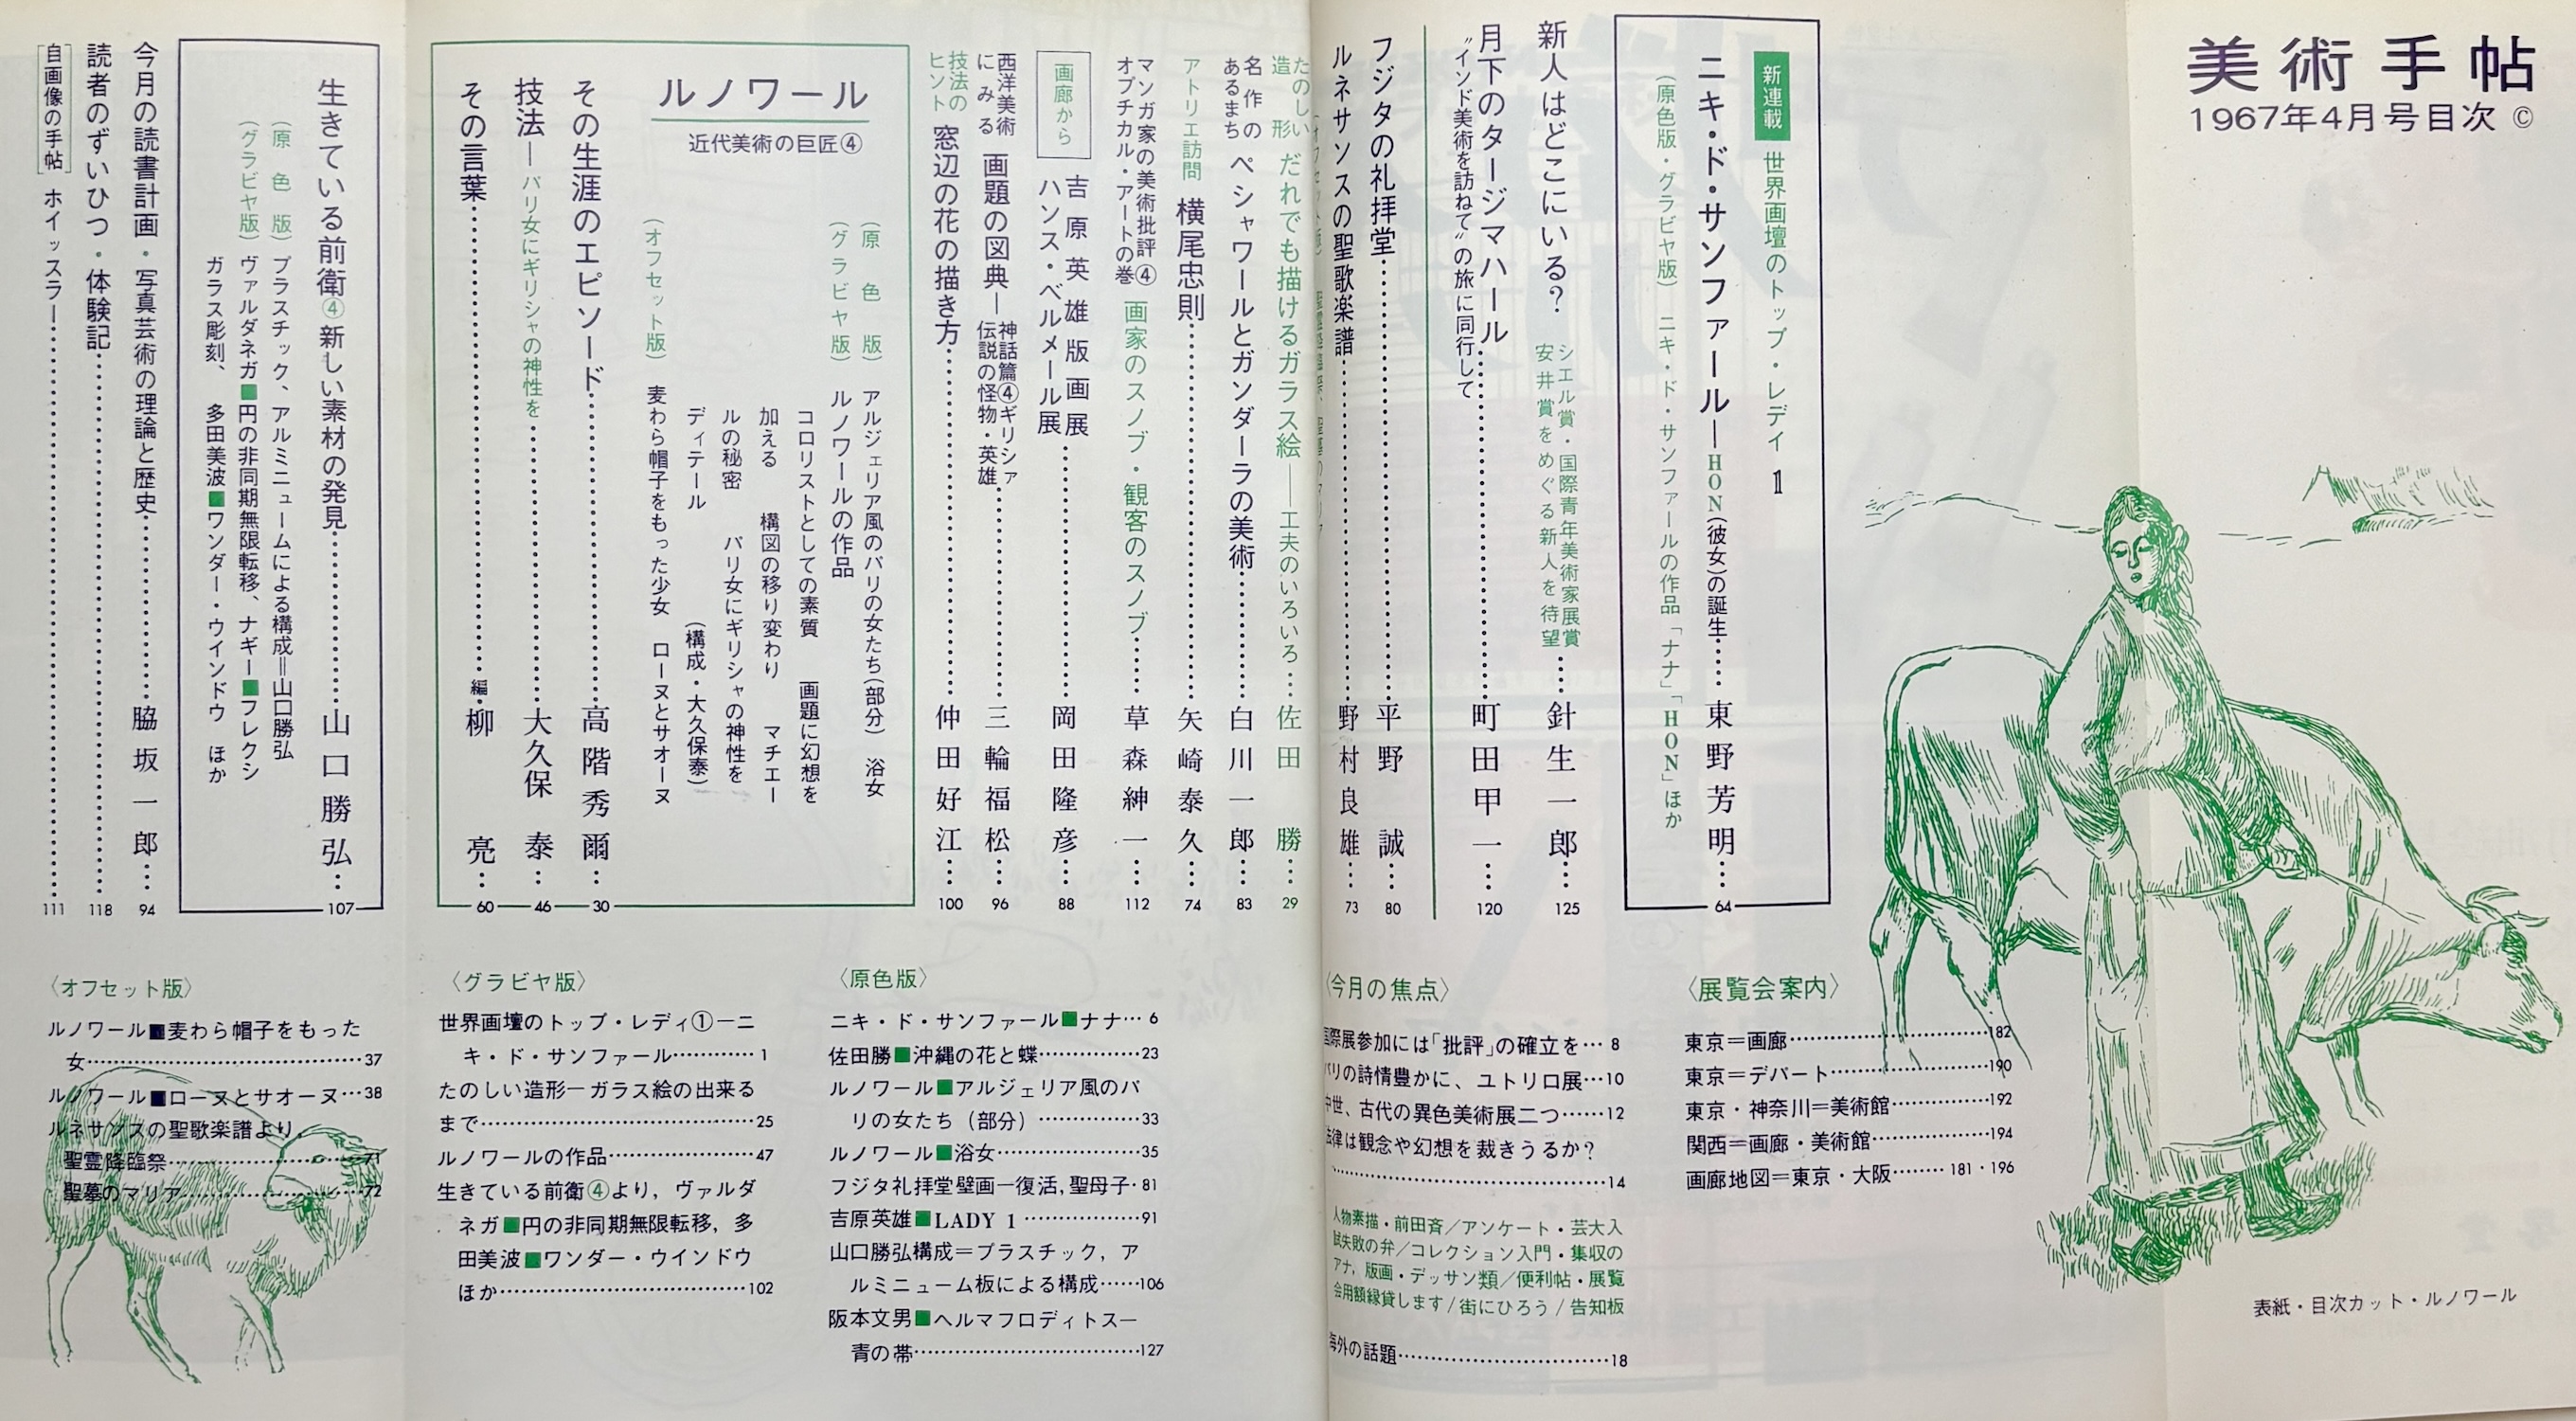 美術手帖
1967年4月号目次 ©
新連載 世界画壇のトップ・レディ 1
ニキ・ド・サンファール―HON(彼女)の誕生……東野芳明……64
(原色版・グラビヤ版) ニキ・ド・サンファールの作品「ナナ」「HON」ほか
新人はどこにいる? シエル賞・国際青年美術家展賞
安井賞をめぐる新人を待望……針生一郎……125
月下のタージマハール……町田甲一……120
“インド美術を訪ねて”の旅に同行して
フジタの礼拝堂……平野誠……80
ルネサンスの聖歌楽譜……野村良雄……73
たのしい造形 だれでも描けるガラス絵――工夫のいろいろ……佐田勝……29
名作のあるまち ペシャワールとガンダーラの美術……白川一郎……83
アトリエ訪問 横尾忠則……矢崎泰久……74
マンガ家の美術批評④
オプチカル・アートの巻 画家のスノブ・観客のスノブ……草森紳一……112
画廊から 吉原英雄版画展
ハンス・ベルメール展……岡田隆彦……88
西洋美術にみる 画題の図典―神話篇④ギリシァ
伝説の怪物・英雄……三輪福松……96
技法のヒント 窓辺の花の描き方……仲田好江……100
ルノワール
近代美術の巨匠④
(原色版) アルジェリア風のパリの女たち(部分) 浴女
(グラビヤ版) ルノワールの作品
コロリストとしての素質 画題に幻想を
加える 構図の移り変わり マチエー
ルの秘密 パリ女にギリシャの神性を
ディテール (構成・大久保泰)
(オフセット版) 麦わら帽子をもった少女 ローヌとサオーヌ
その生涯のエピソード……高階秀爾……30
技法―パリ女にギリシャの神性を……大久保泰……46
その言葉……編・柳亮……60
生きている前衛④新しい素材の発見……山口勝弘……107
(原色版) プラスチック、アルミニュームによる構成=山口勝弘
(グラビヤ版) ヴァルダネガ■円の非同期無限転移、ナギー■フレクシ
ガラス彫刻、多田美波■ワンダー・ウインドウ ほか
今月の読書計画・写真芸術の理論と歴史……脇坂一郎……94
読者のずいひつ・体験記……118
自画像の手帖 ホイッスラー……111
〈展覧会案内〉
東京=画廊……182
東京=デパート……190
東京・神奈川=美術館……192
関西=画廊・美術館……194
画廊地図=東京・大阪……181・196
〈今月の焦点〉
国際展参加には「批評」の確立を…8
パリの詩情豊かに、ユトリロ展…10
中世、古代の異色美術展二つ……12
法律は観念や幻想を裁きうるか?
……14
人物素描・前田斉/アンケート・芸大入
試失敗の弁/コレクション入門・集収の
アナ,版画・デッサン類/便利帖・展覧
会用額縁貸します/街にひろう/告知板
海外の話題……18
〈原色版〉
ニキ・ド・サンファール■ナナ…6
佐田勝■沖縄の花と蝶……23
ルノワール■アルジェリア風のパ
リの女たち(部分)……33
ルノワール■浴女……35
フジタ礼拝堂壁画―復活,聖母子・81
吉原英雄■LADY 1……91
山口勝弘構成=プラスチック,ア
ルミニューム板による構成……106
阪本文男■ヘルマフロディトス―
青の帯……127
〈グラビヤ版〉
世界画壇のトップ・レディ①―ニ
キ・ド・サンファール……1
たのしい造形―ガラス絵の出来る
まで……25
ルノワールの作品……47
生きている前衛④より,ヴァルダ
ネガ■円の非同期無限転移,多
田美波■ワンダー・ウインドウ
ほか……102
〈オフセット版〉
ルノワール■麦わら帽子をもった
女……37
ルノワール■ローヌとサオーヌ…38
ルネサンスの聖歌楽譜より,
聖霊降臨祭……71
聖墓のマリア……72
表紙・目次カット・ルノワール